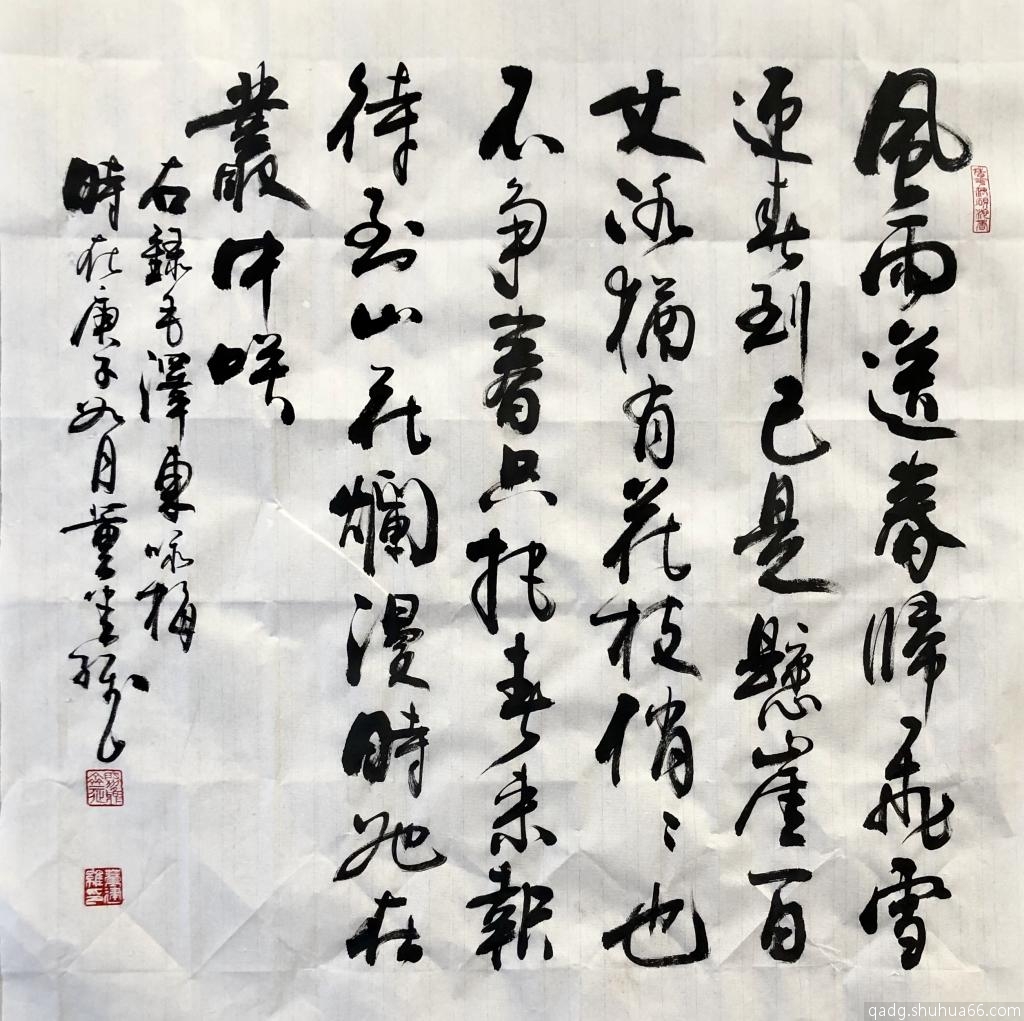 風雨送春歸飛雪
迎春到已是懸崖百
丈冰猶有花枝俏〻也
不争春只把春來報
待到山花爛漫時她在
叢中咲
右録毛澤東咏梅
時在庚子如月
qadg.shuhua66.com